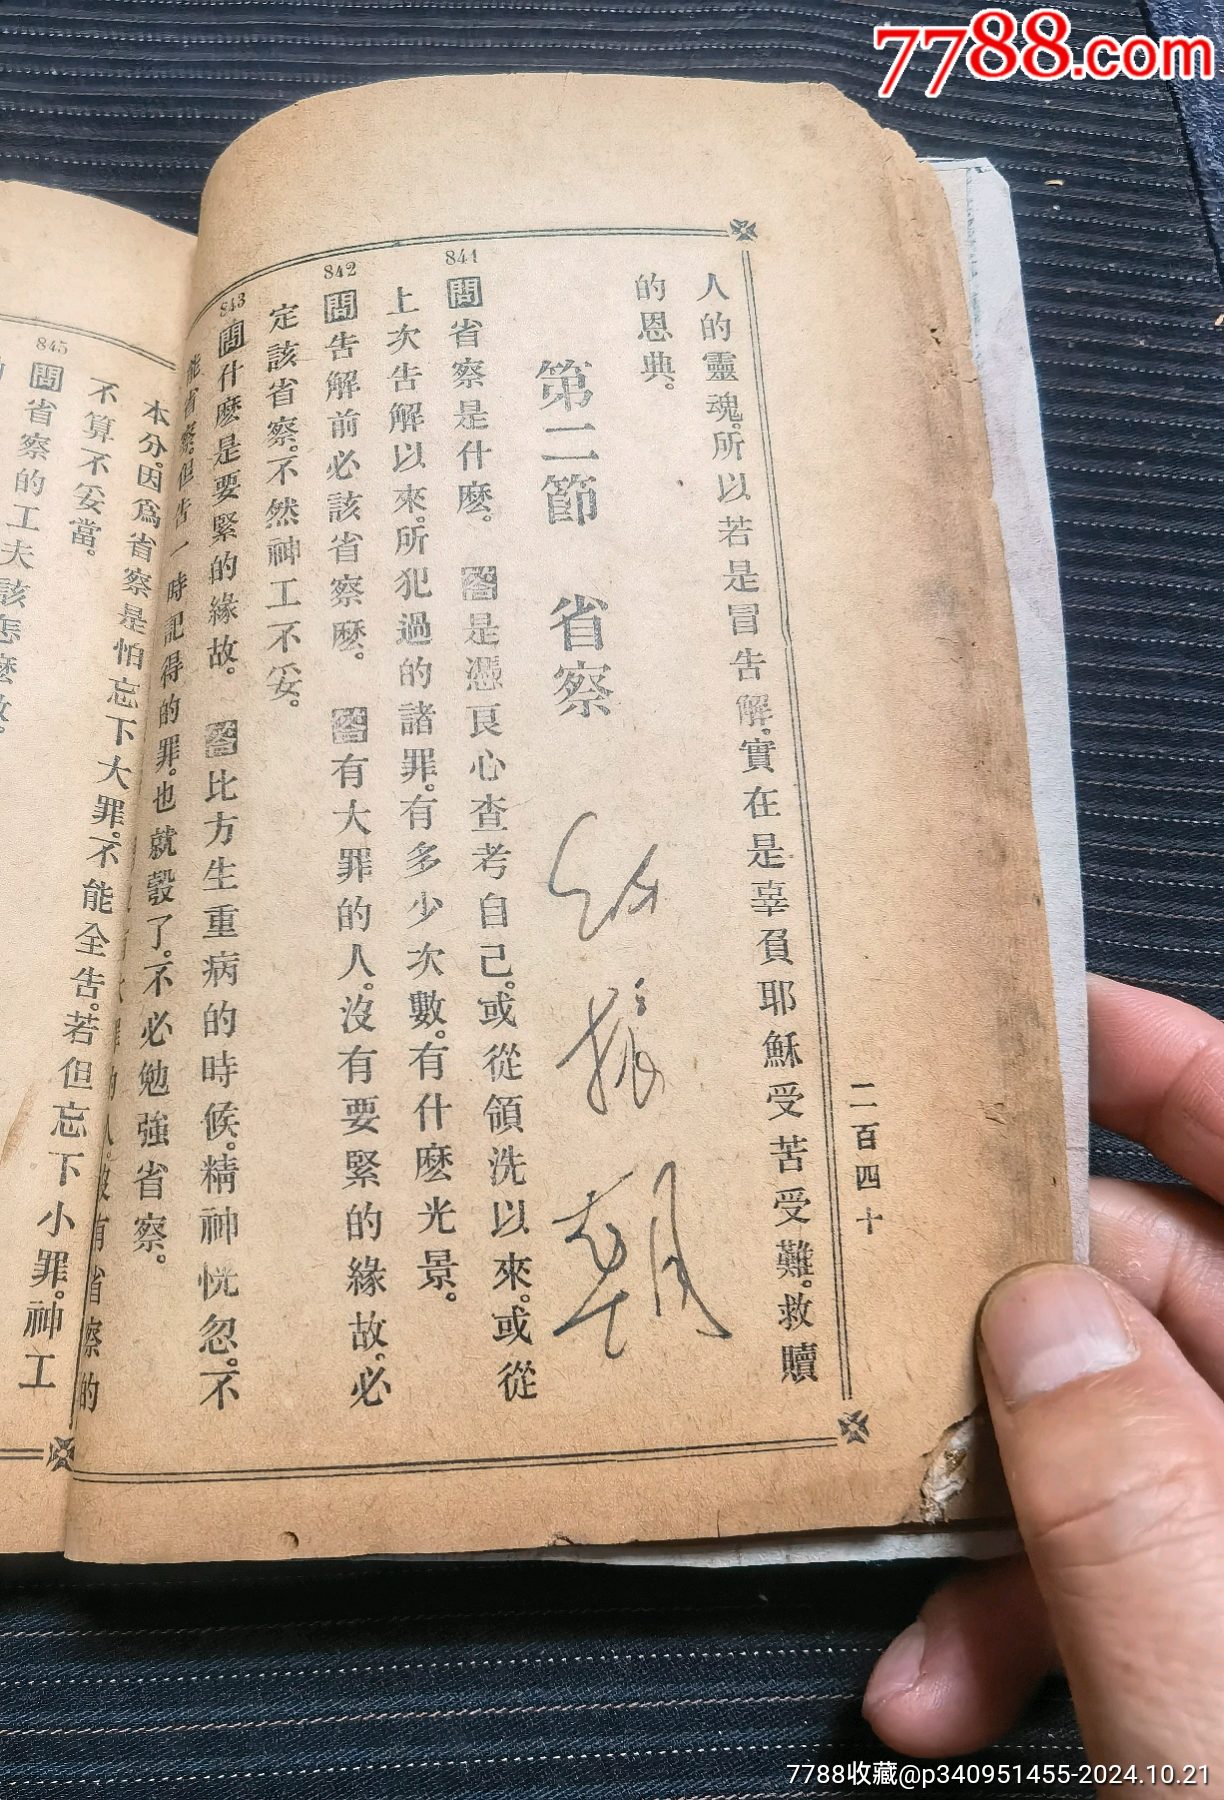 7788.com
人的靈魂。所以若是冒告解。實在是辜負耶穌受苦受難。救贖
的恩典。
第二節 省察
841 問省察是什麽。 答是憑良心查考自己。或從領洗以來。或從
上次告解以來。所犯過的諸罪。有多少次數。有什麽光景。
842 問告解前必該省察麽。 答有大罪的人。沒有要緊的緣故。必
定該省察。不然神工不妥。
843 問什麽是要緊的緣故。 答比方生重病的時候。精神恍忽。不
能省察。但告一時記得的罪。也就彀了。不必勉強省察。
二百四十
振朝
沒有省察的
本分。因爲省察是怕忘下大罪。不能全告。若但忘下小罪。神工
不算不妥當。
845 問省察的工夫該怎麽做。
7788收藏@p340951455-2024.10.21